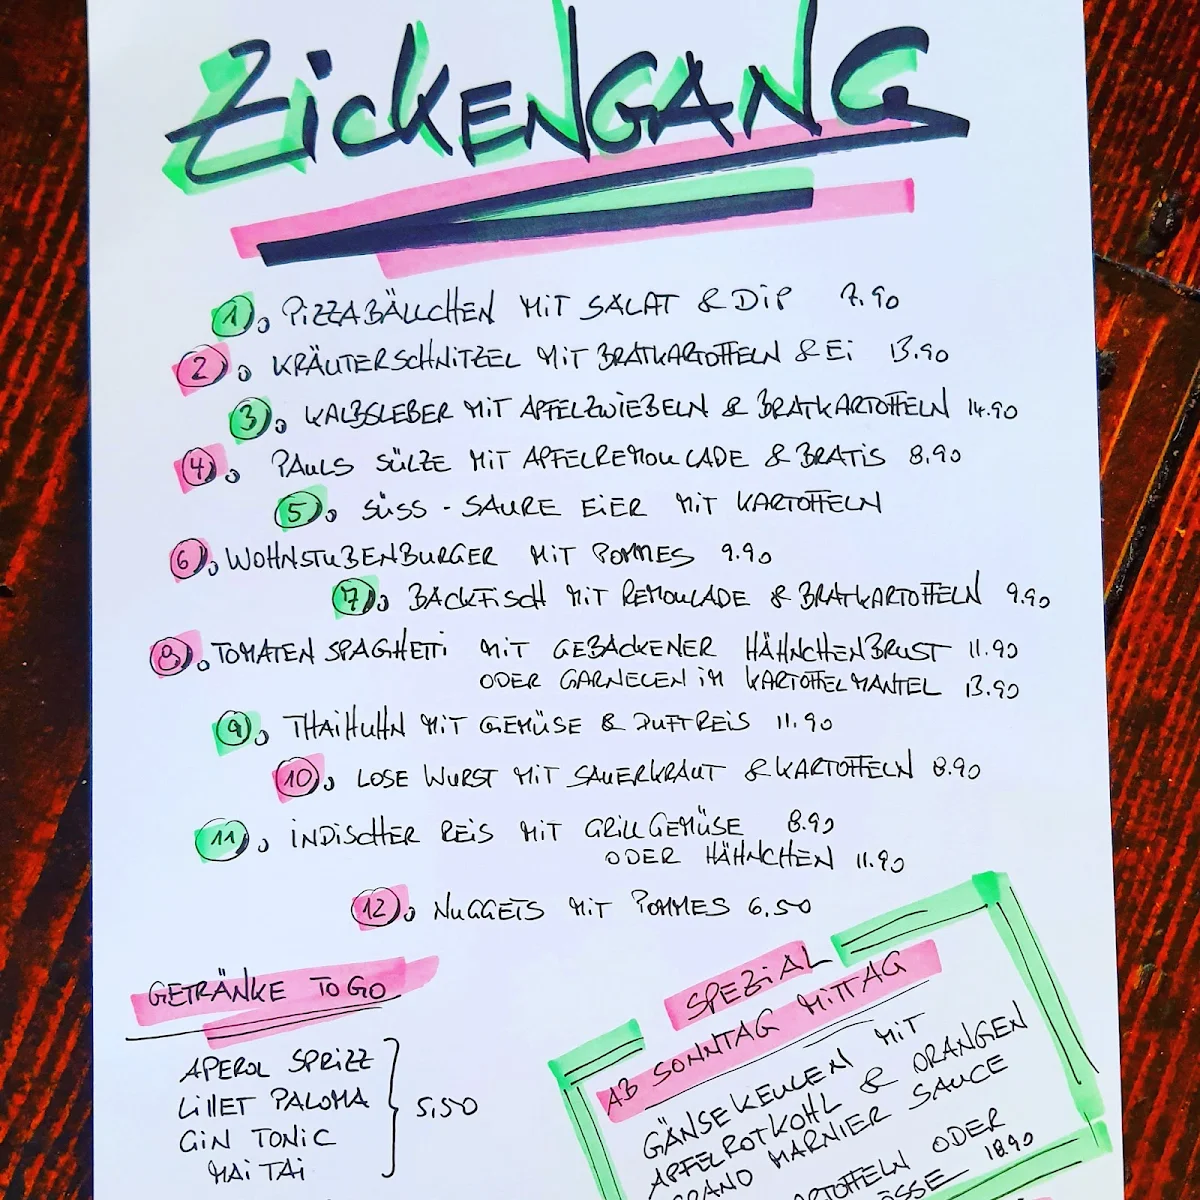 ZICKENGANG
1. PIZZABÄLLCHEN MIT SALAT & DIP 7.90
2. KRÄUTERSCHNITZEL MIT BRATKARTOFFELN & EI 13.90
3. KALBSLEBER MIT APFELZWIEBELN & BRATKARTOFFELN 14.90
4. PAULS SÜLZE MIT APFELREMOULADE & BRATIS 8.90
5. SÜSS - SAURE EIER MIT KARTOFFELN
6. WOHNSTUBENBURGER MIT POMMES 9.90
7. BACKFISCH MIT REMOULADE & BRATKARTOFFELN 9.90
8. TOMATEN SPAGHETTI MIT GEBACKENER HÄHNCHENBRUST 11.90
ODER GARNELEN IM KARTOFFELMANTEL 13.90
9. THAIHUHN MIT GEMÜSE & DUFTREIS 11.90
10. LOSE WURST MIT SAUERKRAUT & KARTOFFELN 8.90
11. INDISCHER REIS MIT GRILLGEMÜSE 8.90
ODER HÄHNCHEN 11.90
12. NUGGETS MIT POMMES 6.50
GETRÄNKE TO GO
APEROL SPRIZZ
LILLET PALOMA
GIN TONIC
MAI TAI
5,50
SPEZIAL
AB SONNTAG MITTAG
GÄNSEKEULEN MIT
APFELROTKOHL & ORANGEN
GRAND MARNIER SAUCE
KARTOFFELN ODER
18.90